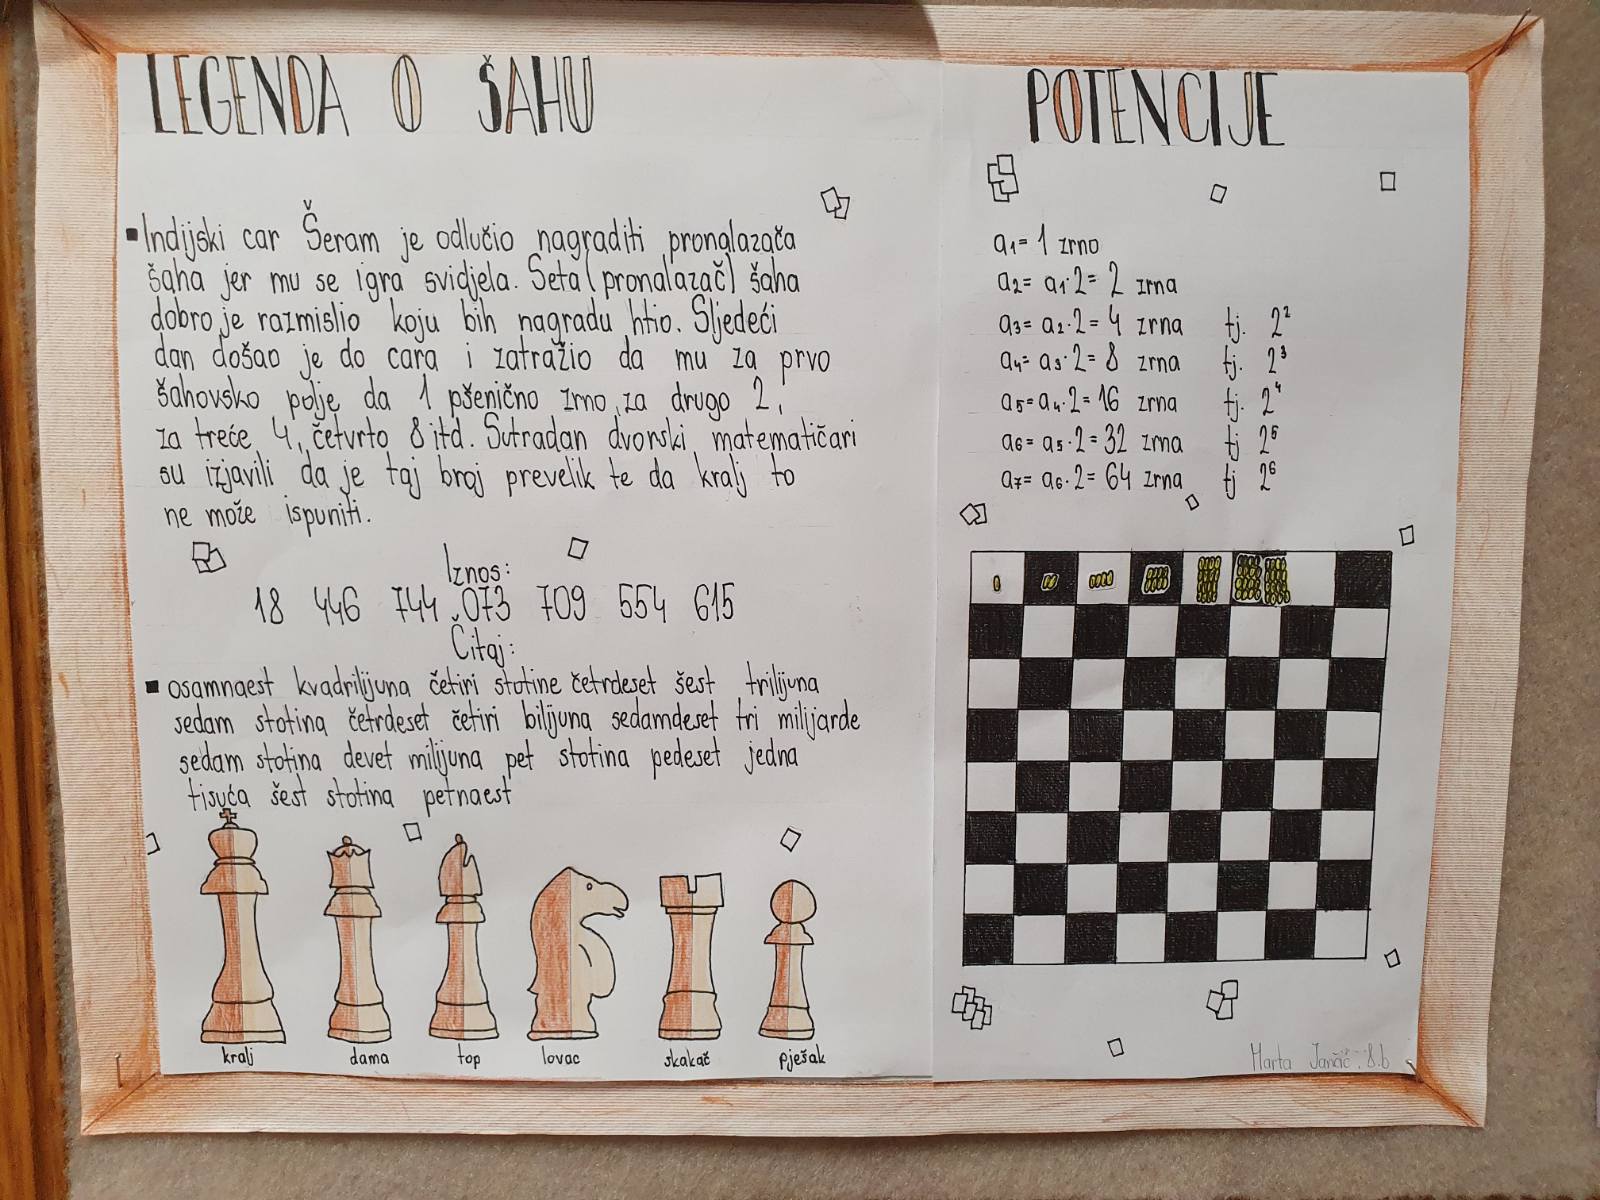 LEGENDA O ŠAHU
Indijski car Šeram je odlučio nagraditi pronalazača
šaha jer mu se igra svidjela. Seta (pronalazač) šaha
dobro je razmislio koju bih nagradu htio. Sljedeći
dan došao je do cara i zatražio da mu za prvo
šahovsko polje da 1 pšenično zrno, za drugo 2,
za treće 4, četvrto 8 itd. Sutradan dvorski matematičari
su izjavili da je taj broj prevelik te da kralj to
ne može ispuniti.
Iznos:
18 446 744 073 709 554 615
Čitaj:
osamnaest kvadrilijuna četiri stotine četrdeset šest trilijuna
sedam stotina četrdeset četiri bilijuna sedamdeset tri milijarde
sedam stotina devet milijuna pet stotina pedeset jedna
tisuća šest stotina petnaest
kralj dama top lovac skakač pješak
POTENCIJE
a₁= 1 zrno
a₂= a₁·2= 2 zrna
a₃= a₂·2= 4 zrna tj. 2²
a₄= a₃·2= 8 zrna tj. 2³
a₅= a₄·2= 16 zrna tj. 2⁴
a₆= a₅·2= 32 zrna tj 2⁵
a₇= a₆·2= 64 zrna tj 2⁶
Marta Jančić, 8.b